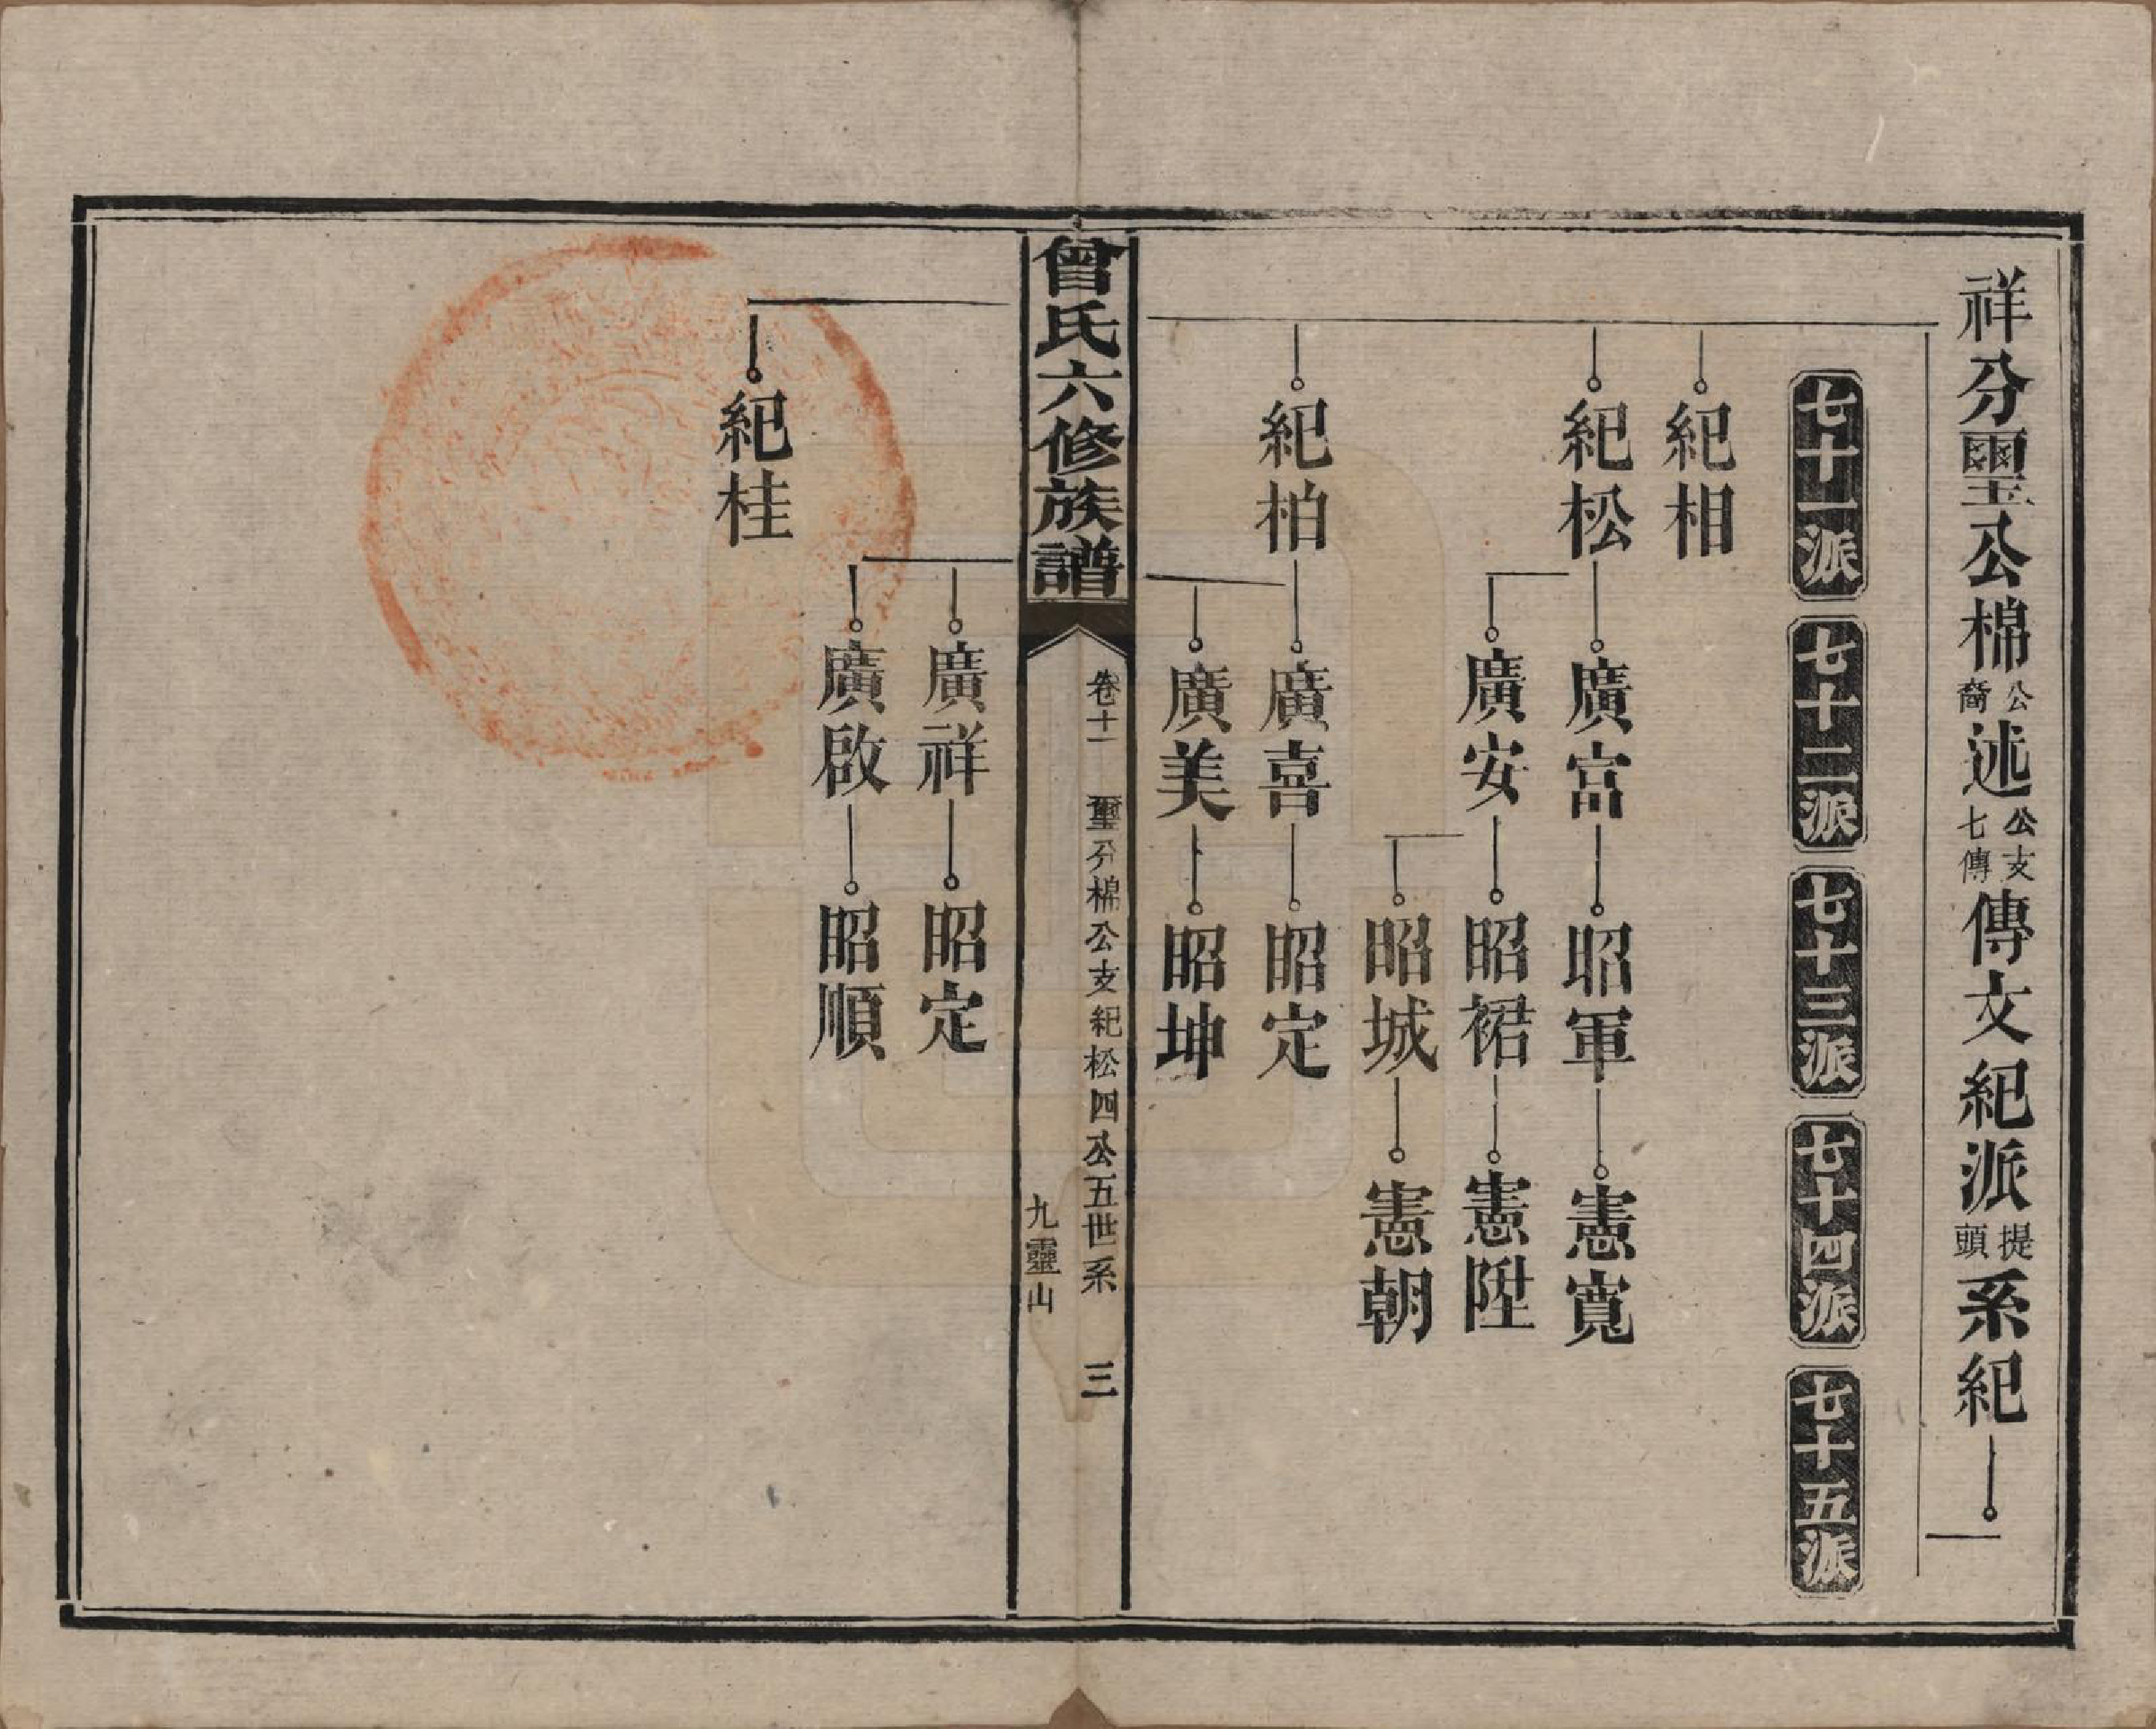 祥分璽公棉公裔述公支七傳傳文紀派提頭系紀
七十一派
七十二派
七十三派
七十四派
七十五派
紀相
紀松
廣富
昭軍
憲寬
廣安
昭裙
憲陞
昭城
憲朝
紀柏
廣喜
昭定
廣美
昭坤
曾氏六修族譜
卷十一
璽分棉公支紀松四公五世系
三
九靈山
廣祥
昭定
廣啟
昭順
紀桂